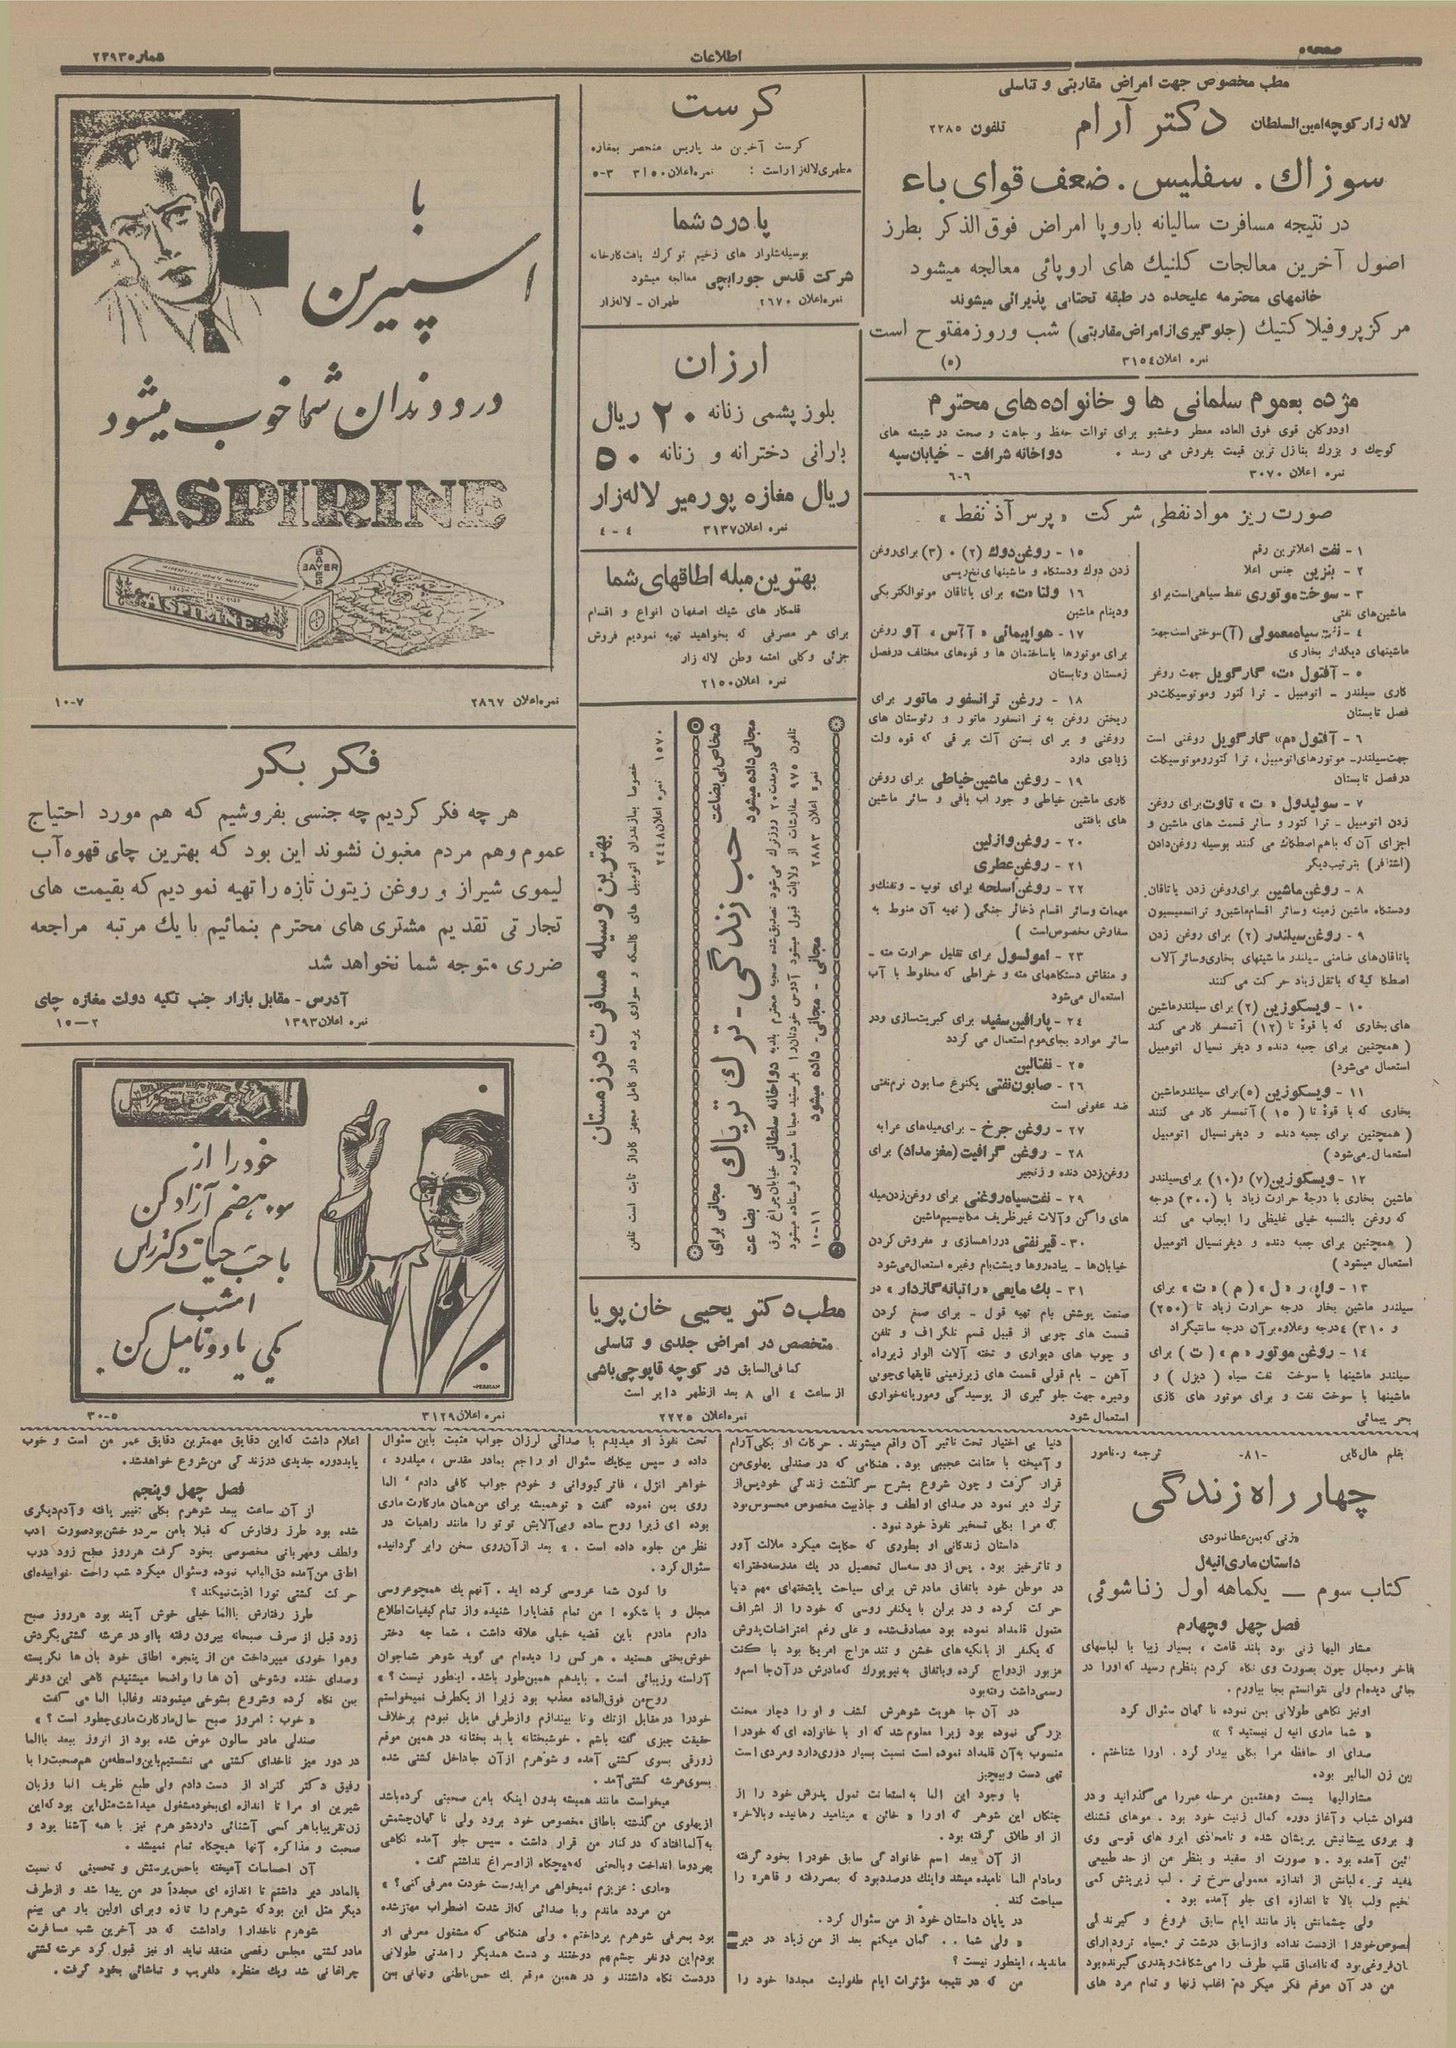 صفحه ۵
اطلاعات
شماره ۲۳۹۳
مطب مخصوص جهت امراض مقاربتی و تناسلی
لاله زار کوچه امین السلطان دکتر آرام تلفون ۲۲۸۵
سوزاك . سفلیس . ضعف قوای باء
در نتیجه مسافرت سالیانه باروپا امراض فوق الذکر بطرز
اصول آخرین معالجات کلنیك های اروپائی معالجه میشود
خانمهای محترمه علیحده در طبقه تحتانی پذیرائی میشوند
مرکز پروفیلا کتیك (جلوگیری از امراض مقاربتی) شب و روز مفتوح است
نمره اعلان ۳۱۵۴ (۵)
مژده بعموم سلمانی ها و خانواده های محترم
اودوکلن قوی فوق العاده معطر وخشبو برای توالت حفظ و جاهت و صحت در شیشه های
کوچك و بزرك بنازل ترین قیمت بفروش می رسد . دواخانه شرافت - خیابان سپه
نمره اعلان ۳۰۷۰ ۶-۶
صورت ریز مواد نفطی شرکت « پرس آذ نفط »
۱ - نفت اعلاترین رقم
۲ - بنزین جنس اعلا
۳ - سوخت موتوری نفط سیاهی است برای
ماشین‌های نفتی
۴ - نفت سیاه معمولی (آ) سوختی است جهت
ماشینهای دیگدار بخاری
۵ - آفتول «ت» گارگویل جهت روغن
کاری سیلندر - اتومبیل - ترا کتور وموتوسیکلت در
فصل تابستان
۶ - آفتول «م» گارگویل روغنی است
جهت سیلندر - موتورهای اتومبیل، ترا کتور وموتوسیکلت
در فصل تابستان
۷ - سولیدول «ت» تاوت برای روغن
زدن اتومبیل - ترا کتور و سائر قسمت های ماشین و
اجزای آن که باهم اصطکاك می کنند بوسیله روغن دادن
(اشتافر) بترتیب دیگر
۸ - روغن ماشین برای روغن زدن یاتاقان
ودستگاه ماشین زمینه وسائر اقسام ماشین و ترانسمیسیون
۹ - روغن سیلندر (۲) برای روغن زدن
یاتاقان‌های ضامنی، سیلندر ماشینهای بخاری وسائر آلات
اصطکاکیه که باثقل زیاد حرکت می کنند
۱۰ - ویسکوزین (۲) برای سیلندر ماشین
های بخاری که با قوۀ تا (۱۲) آتمسفر کار می کند
( همچنین برای جعبه دنده و دیفرنسیال اتومبیل
استعمال می‌شود)
۱۱ - ویسکوزین (۵) برای سیلندر ماشین
بخاری که با قوۀ تا ( ۱۵ ) آتمسفر کار می کنند
( همچنین برای جعبه دنده و دیفرنسیال اتومبیل
استعمال می‌شود )
۱۲ - ویسکوزین (۷) و(۱۰) برای سیلندر
ماشین بخاری با درجۀ حرارت زیاد با (۳۰۰) درجه
که روغن بالنسبه خیلی غلیظی را ایجاب می کند
( همچنین برای جعبه دنده و دیفرنسیال اتومبیل
استعمال میشود )
سیلندر ماشین بخار درجه حرارت زیاد تا (۲۵۰)
و ۳۱۰) درجه وعلاوه بر آن درجه سانتیگراد
۱۴ - روغن موتور «م » (ت) برای
سیلندر ماشینها با سوخت نفت سیاه ( دیزل ) و
ماشینها با سوخت نفت و برای موتور های گازی
بحر پیمائی
۱۵ - روغن دوك (۲) ۰ (۳) برای روغن
زدن دوك ودستگاه و ماشینهای نخ ریسی
۱۶ - ولتا «ت» برای یاتاقان موتور الکتریکی
ودینام ماشین
۱۷ - هواپیمائی «آآس» آو روغن
برای موتورها یاساختمان ها و قوه‌های مختلف در فصل
زمستان وتابستان
۱۸ - روغن ترانسفور ماتور برای
ریختن روغن به ترانسفور ماتور و رئوستان های
روغنی و برای بستن آلت برقی که قوه ولت
زیادی دارد
۱۹ - روغن ماشین خیاطی برای روغن
کاری ماشین خیاطی و جوراب بافی و سائر ماشین
های بافتنی
۲۰ - روغن وازلین
۲۱ - روغن عطری
۲۲ - روغن اسلحه برای توپ - وتفنك و
مهمات وسائر اقسام ذخائر جنگی ( تهیه آن منوط به
سفارش مخصوص است )
۲۳ - امولسول برای تقلیل حرارت مته -
و منقاش دستگاههای مته و خراطی که مخلوط با آب
استعمال می‌شود
۲۴ - پارافین سفید برای کبریت‌سازی ودر
سائر موارد بجای موم استعمال می گردد
۲۵ - نفتالین
۲۶ - صابون نفتی یکنوع صابون نرم نفتی
ضد عفونی است
۲۷ - روغن چرخ - برای میله‌های عرابه
۲۸ - روغن گرافیت (مغز مداد) برای
روغن‌زدن دنده و زنجیر
۲۹ - نفت سیاه روغنی برای روغن‌زدن میله
های واگن وآلات غیر ظریف مکانیسم ماشین
۳۰ - قیر نفتی در راهسازی و مفروش کردن
خیابان‌ها - پیاده‌روها وپشت‌بام وغیره استعمال می‌شود
۳۱ - بك مایعی «راتبانه گازدار» در
صنعت پوشش بام تهیه قول - برای صمغ کردن
قسمت های چوبی از قبیل قسم تلگراف و تلفن
و چوب های دیواری و تخته آلات الوار زیر راه
آهن - بام قولی قسمت های زیرزمینی قایقهای چوبی
وغیره جهت جلو گیری از پوسیدگی وموریانه خواری
استعمال شود
کرست
کرست آخرین مد پاریس منحصر بمغازه
مطهری لاله‌زار است : نمره اعلان ۳۱۵۰ ۳-۵
پا درد شما
بوسیله شلوار های زخیم تو کرك بافت کارخانه
شرکت قدس جورابچی معالجه میشود
نمره اعلان ۲۶۷۰ طهران - لاله‌زار
ارزان
بلوز پشمی زنانه ۲۰ ریال
بارانی دخترانه و زنانه ۵۰
ریال مغازه پورمیر لاله زار
نمره اعلان ۳۱۳۷ ۴ - ۴
بهترین مبله اطاقهای شما
قلمکار های شیك اصفهان انواع و اقسام
برای هر مصرفی که بخواهید تهیه نمودیم فروش
جزئی وکلی امتعه وطن لاله زار
نمره اعلان ۲۱۵۰
مجانی - مجانی - داده میشود
نمره اعلان ۲۸۸۳ ۱۱-۱۰
تلفون ۹۷۵ سفارشات از ولایات قبول میشود آدرس خودتان‌را بفرستید مجانا مستوره فرستاده میشود
در مدت ۲۰ روز ترك می‌شود تصدیق شده صحیه محترم بلدیه دواخانه سلطانی خیابان چراغ برق
حب زندگی - ترك تریاك
مجانی داده میشود
مجانی برای اشخاص بی بضاعت
بهترین وسیله مسافرت در زمستان
خصوصا بمازندران اتومبیل های کالسکه و سواری پرده دار کامل مجهز کاراژ ثابت است تلفن
۱۵۷۰ نمره اعلان ۲۴۴۸
مطب دکتر یحیی خان پویا
متخصص در امراض جلدی و تناسلی
کما فی‌السابق در کوچه قاپوچی باشی
از ساعت ۴ الی ۸ بعد از ظهر دایر است
نمره اعلان ۲۲۲۵
با
اسپیرین
درد دندان شما خوب میشود
ASPIRINE
BAYER
BAYER
ASPIRINE
نمره اعلان ۲۸۶۷ ۷-۱۰
فکر بکر
هر چه فکر کردیم چه جنسی بفروشیم که هم مورد احتیاج
عموم وهم مردم مغبون نشوند این بود که بهترین چای قهوه آب
لیموی شیراز و روغن زیتون تازه را تهیه نمودیم که بقیمت های
تجارتی تقدیم مشتری های محترم بنمائیم با یك مرتبه مراجعه
ضرری متوجه شما نخواهد شد
آدرس - مقابل بازار جنب تکیه دولت مغازه چای
نمره اعلان ۱۳۹۳ ۲-۱۵
خود را از
سوء هضم آزاد کن
با حب حیات دکتر راس
امشب
یکی یا دو تا میل کن.
نمره اعلان ۳۱۲۹ ۵-۳۰
بقلم هال کاین -۸۱- ترجمه ر. نامور
چهار راه زندگی
«زنی که بمن عطا نبودی»
داستان ماری انیه ل
کتاب سوم ـــ یکماهه اول زناشوئی
فصل چهل وچهارم
مشار الیها زنی بود بلند قامت ، بسیار زیبا با لباسهای
فاخر ومجلل چون بصورت وی نگاه کردم بنظرم رسید که اورا در
جائی دیده‌ام ولی نتوانستم بجا بیاورم .
اونیز نگاهی طولانی بمن نموده نا گهان سئوال کرد
« شما ماری انیه ل نیستید ؟ »
صدای او حافظه مرا بکلی بیدار کرد . اورا شناختم .
این زن المالیر بود .
مشارالیها بیست وهفتمین مرحله عمر را می گذرانید و در
عنفوان شباب و آغاز دوره کمال زنیت خود بود . موهای قشنك
بروی پیشانیش پریشان شده و تامحاذی ابرو های قوسی وی
پائین آمده بود . صورت او سفید و بنظر من از حد طبیعی
سفید تر ، لبانش از اندازه معمولی سرخ تر . لب زیرینش کمی
ضخیم ولب بالا تا اندازه ای جلو آمده بود .
ولی چشمانش باز مانند ایام سابق فروغ و گیرندگی
مخصوص خودرا ازدست نداده وازسابق درشت تر وسیاه تر ودارای
من در آن موقع فکر میکردم اغلب زنها و تمام مرد های
دنیا بی اختیار تحت تاثیر آن واقع میشوند . حرکات او بکلی آرام
و آمیخته با متانت عجیبی بود . هنگامی که در صندلی پهلوی من
قرار گرفت و چون شروع بشرح سرگذشت زندگی خودپس از
ترك دیر نمود در صدای او لطف و جاذبیت مخصوص محسوس بود
که مرا بکلی تسخیر نفوذ خود نمود .
داستان زندگانی او بطوری که حکایت میکرد ملالت آور
و تاثرخیز بود . پس از دو سه سال تحصیل در یك مدرسه دخترانه
در موطن خود باتفاق مادرش برای سیاحت پایتختهای مهم دنیا
حرکت کرده و در برلن با یکنفر روسی که خود را از اشراف
متمول قلمداد نموده بود مصادف شده و علی رغم اعتراضات پدرش
که یکنفر از بانکیه های خشن و تند مزاج امریکا بود با کنت
مزبور ازدواج کرده وباتفاق به نیویورك که مادرش در آن جا اسم و
رسمی داشت رفته بود
در آن جا هویت شوهرش کشف و او را دچار محنت
بزرگی نموده بود زیرا معلوم شد که او با خانواده ای که خودرا
منسوب به آن قلمداد نموده است نسبت بسیار دوری دارد ومردی است
تهی دست وبیچیز
با وجود این الما به استعانت تمول پدرش خود را از
چنگال این شوهر که او را « خائن » مینامید رهانیده وبالاخره
از او طلاق گرفته بود .
از آن ببعد اسم خانوادگی سابق خودرا بخود گرفته
ومادام الما نامیده میشد واینك در صدد بود که بمصر رفته و قاهره را
سیاحت کند .
در پایان داستان خود از من سئوال کرد .
« ولی شما . . گمان میکنم بعد از من زیاد در دیر
ماندید ، اینطور نیست ؟
من که در نتیجه مؤثرات ایام طفولیت مجددا خود را
تحت نفوذ او میدیدم با صدائی لرزان جواب مثبت باین سئوال
داده و سپس بیكایك سئوال او راجع بمادر مقدس ، میلدرد ،
خواهر انژل ، فاتر کیووانی و خودم جواب کافی دادم « الما
روی بمن نموده گفت « توهمیشه برای من همان مارکارت ماری
بوده ای زیرا روح ساده وبی‌آلایش تو تورا مانند راهبات در
نظر من جلوه داده است . » بعد از آن روی سخن رابر گردانیده
سئوال کرد .
وا کنون شما عروسی کرده اید . آنهم یك همچو عروسی
مجلل و با شکوه ! من تمام قضایارا شنیده واز تمام کیفیات اطلاع
دارم مادرم باین قضیه خیلی علاقه داشت ، شما چه دختر
خوشبختی هستید . هرکس را دیده‌ام می گوید شوهر شماجوان
آراسته وزیبائی است . بایدهم همین‌طور باشد. اینطور نیست ؟ »
روح‌من فوق‌العاده معذب بود زیرا از یکطرف نمیخواستم
خودرا در مقابل از تك وتا بیندازم وازطرفی مایل نبودم بر خلاف
حقیقت چیزی گفته باشم . خوشبختانه یا بد بختانه در همین موقع
زورقی بسوی کشتی آمده و شوهرم از آن جا داخل کشتی شده
بسوی عرشه کشتی آمد .
میخواست مانند همیشه بدون اینکه بامن صحبتی کرده‌باشد
از پهلوی من گذشته باطاق مخصوص خود برود ولی نا گهان چشمش
به آلما افتاد که در کنار من قرار داشت . سپس جلو آمده نگاهی
بهردوما انداخت وبالحنی که هیچگاه ازاو سراغ نداشتم گفت .
«ماری : عزیزم نمیخواهی مرابدوست خودت معرفی کنی؟ »
من مردد ماندم وبا صدائی که از شدت اضطراب مهتز شده
بود بمعرفی شوهرم پرداختم . ولی هنگامی که مشغول معرفی او
بودم این دو نفر چشم بهم دوختند و دست همدیگر را مدتی طولانی
در دست نگاه داشتند و در همین موقع یك حس باطنی ونهانی بمن
اعلام داشت که این دقایق مهمترین دقایق عمر من است و خوب
یابد دوره جدیدی در زندگی من شروع خواهد شد.
فصل چهل وپنجم
از آن ساعت ببعد شوهرم بکلی تغییر یافته وآدم دیگری
شده بود طرز رفتارش که قبلا بامن سرد و خشن بود صورت ادب
ولطف ومهربانی مخصوصی بخود گرفت هر روز صبح زود درب
اطاق من آمده دق‌الباب نموده وسئوال میکرد شب راحت خوابیده‌ای
حرکت کشتی تورا اذیت نمیکند ؟
طرز رفتارش باالما خیلی خوش آیند بود هر روز صبح
زود قبل از صرف صبحانه بیرون رفته بااو در عرشه کشتی بگردش
وهوا خوری میپرداخت من از پنجره اطاق خود بآن‌ها نگریسته
وصدای خنده وشوخی آن ها را واضحا میشنیدم گاهی این دو نفر
بمن نگاه کرده وشروع بشوخی مینمودند وغالبا الما می گفت
« خوب : امروز صبح حال مارکارت ماری چطور است ؟ »
صندلی مادر سالون عوض شده بود از انروز ببعد باالما
در دور میز ناخدای کشتی می نشستیم باین واسطه من هم صحبت را با
رفیق دکتر کنراد از دست دادم ولی طبع ظریف الما وزبان
شیرین او مرا تا اندازه ای بخود مشغول میداشت مثل این بود که این
زن تقریبا باهر کسی آشنائی دارد شوهرم نیز با همه آشنا بود و
صحبت و مذاکره آنها هیچگاه تمام نمیشد .
آن احساسات آمیخته باحس پرستش و تحسینی که نسبت
باالما در دیر داشتم تا اندازه ای مجدداً در من پیدا شد و از طرف
دیگر مثل این بود که شوهرم را تازه وبرای اولین بار می بینم
شوهرم ناخدارا واداشت که در آخرین شب مسافرت
مادر کشتی مجلس رقصی منعقد نماید او نیز قبول کرد عرشه کشتی
چراغانی شد ویك منظره دلفریب و تماشائی بخود گرفت .